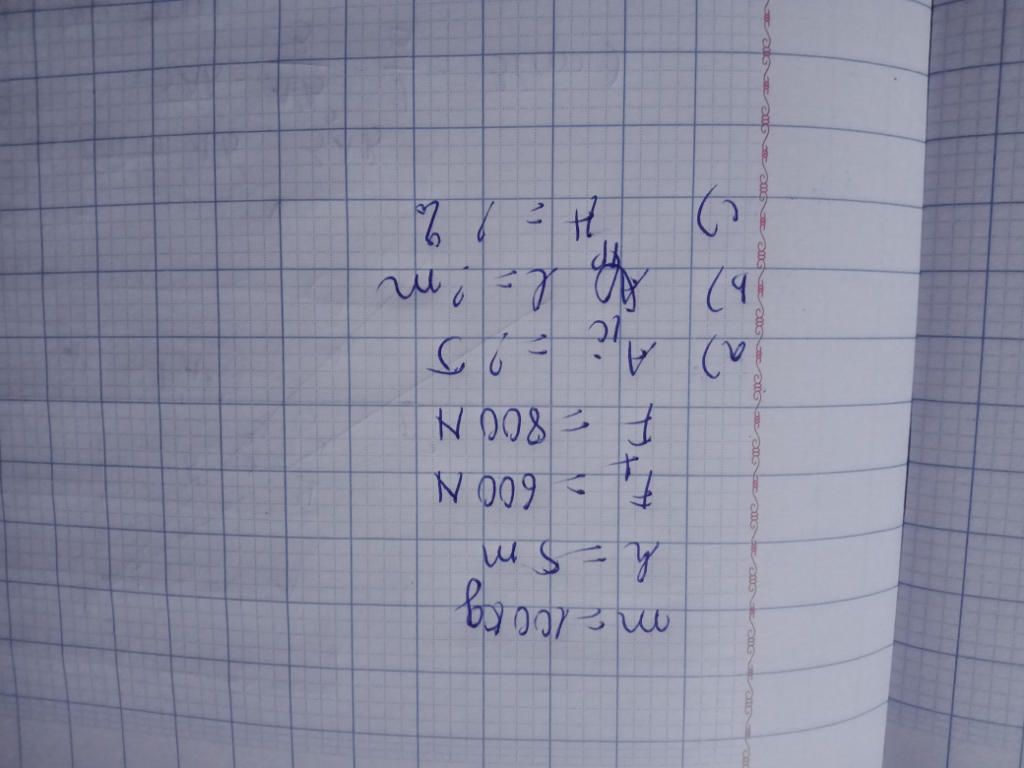 m = 100kg
h = 5 m
F1 = 600 N
F = 800 N
a) Aci = ? J
b) l = ? m
c) H = ? %